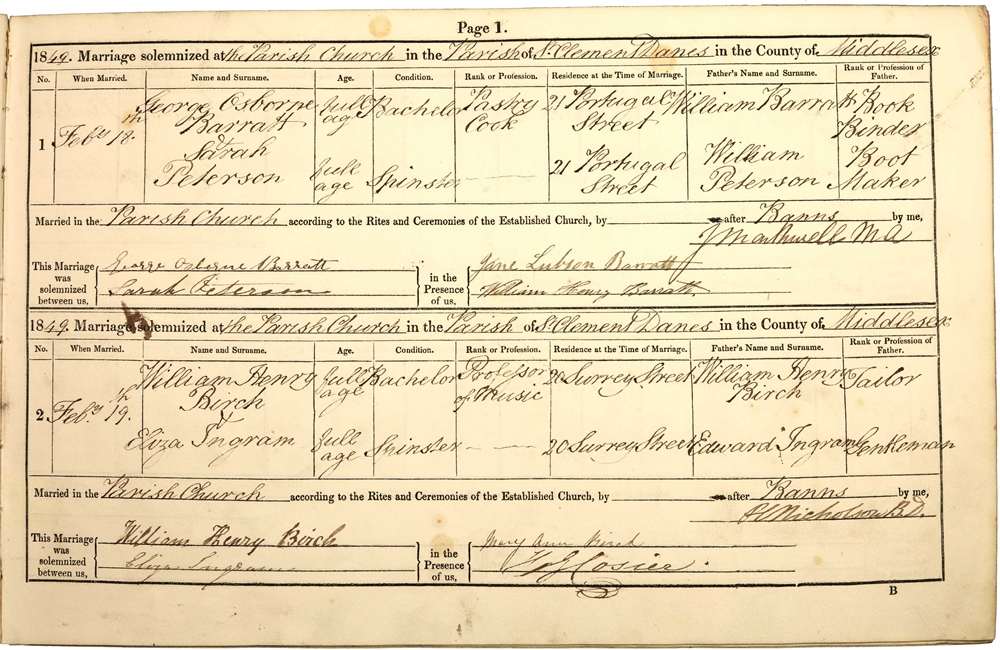 Page 1.
1849. Marriage solemnized at the Parish Church in the Parish of St. Clement Danes in the County of Middlesex
No. When Married. Name and Surname. Age. Condition. Rank or Profession. Residence at the Time of Marriage. Father's Name and Surname. Rank or Profession of Father.
1 Feby 18th George Osborne Barratt full age Bachelor Pastry Cook 21 Portugal Street William Barratt Book Binder
Sarah Peterson full age Spinster 21 Portugal Street William Peterson Boot Maker
Married in the Parish Church according to the Rites and Ceremonies of the Established Church, by after Banns by me,
M.A
This Marriage was solemnized between us, George Osborne Barratt in the Presence of us, Jane Barratt
Sarah Peterson William Henry Barratt
1849. Marriage solemnized at the Parish Church in the Parish of St. Clement Danes in the County of Middlesex
No. When Married. Name and Surname. Age. Condition. Rank or Profession. Residence at the Time of Marriage. Father's Name and Surname. Rank or Profession of Father.
2 Feby. 19th. William Henry Birch full age Bachelor Professor of Music 20 Surrey Street William Henry Birch Tailor
& Eliza Ingram full age Spinster 20 Surrey Street Edward Ingram Gentleman
Married in the Parish Church according to the Rites and Ceremonies of the Established Church, by after Banns by me,
Nicholson B.D.
This Marriage was solemnized between us, William Henry Birch in the Presence of us, Mary Ann Birch
Eliza Ingram Cosier
B